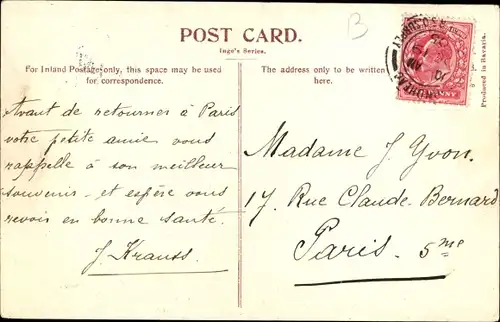 B
POST CARD.
Inge's Series.
For Inland Postage only, this space may be used
for correspondence.
The address only to be written
here.
Produced in Bavaria.
PENNY
Avant de retourner à Paris
votre petite amie vous
rappelle à son meilleur
souvenir et espère vous
revoir en bonne santé.
J. Krauss.
Madame J. Yvon.
17 Rue Claude-Bernard
Paris. 5me